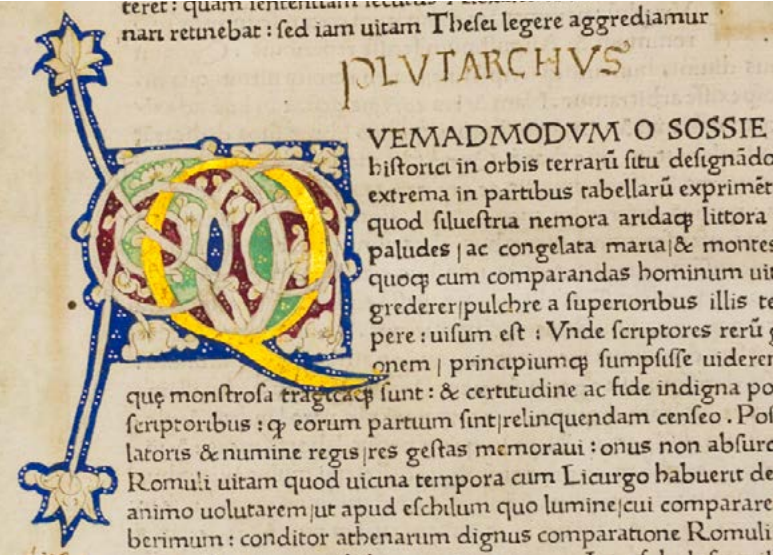 teret : quam sententiam secutus
nari retinebat : sed iam uitam Thesei legere aggrediamur
PLVTARCHVS
QVEMADMODVM O SOSSIE
historici in orbis terrarū situ designādo
extrema in partibus tabellarū exprimēt
quod siluestria nemora aridaqꝫ littora
paludes | ac congelata maria | & montes
quoqꝫ cum comparandas hominum uit
grederer | pulchre a superioribus illis te
pere : uisum est : Vnde scriptores rerū
onem | principiumqꝫ sumpsisse uiderer
quę monstrosa tragicaeqꝫ sunt : & certitudine ac fide indigna po
scriptoribus : ꝙ eorum partium sint | relinquendam censeo . Pos
latoris & numine regis | res gestas memoraui : onus non absurd
Romuli uitam quod uicina tempora cum Licurgo habuerit de
animo uolutarem | ut apud eschilum quo lumine | cui comparare
berimum : conditor athenarum dignus comparatione Romuli